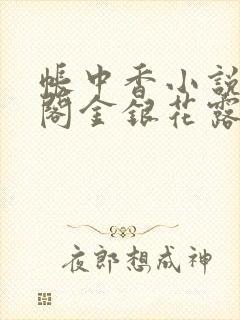 帳中香小説
閣金銀花露
夜郎想成神